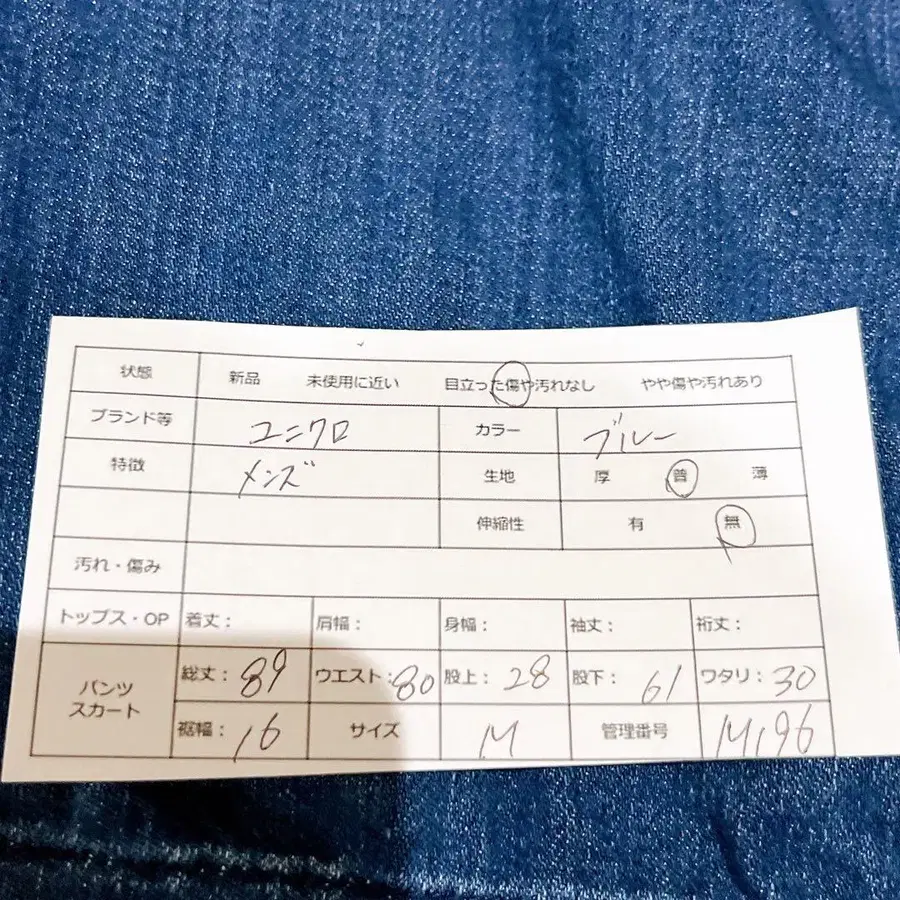 状態 新品 未使用に近い 目立った傷や汚れなし やや傷や汚れあり
ブランド等 ユニクロ カラー ブルー
特徴 メンズ 生地 厚 普 薄
伸縮性 有 無
汚れ・傷み
トップス・OP 着丈： 肩幅： 身幅： 袖丈： 裄丈：
パンツ スカート 総丈：89 ウエスト：80 股上：28 股下：61 ワタリ：30
裾幅：16 サイズ M 管理番号 M196